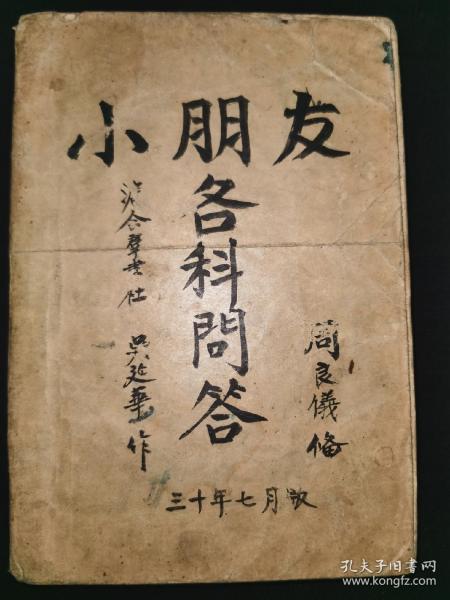 小朋友
各科問答
周良儀備
合羣書社 吴延華作
三十年七月版
孔夫子旧书网
www.kongfz.com